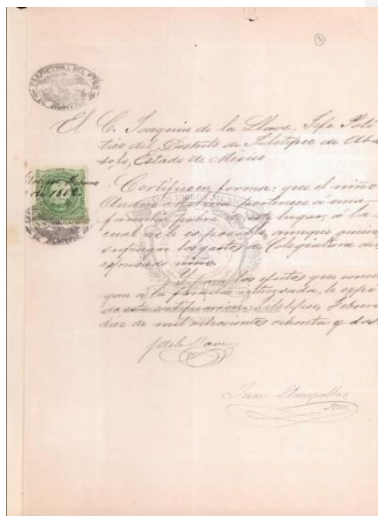 El C. Joaquin de la Llave, Jefe Polí-
tico del Distrito de Jilotepec de Aba-
solo, Estado de Mexico
Certifica en forma: que el niño
Andres Garcia pertenece a una
familia pobre de este lugar, a la
cual no le es posible, aunque quiera
sufragar los gastos de Colegiatura del
espresado niño.
Y para los efectos que conven-
gan a la familia interesada, le espi-
do este certificado en Jilotepec, Febrero
diez de mil ochocientos ochenta y dos.
J de la Llave
Juan
Srio.